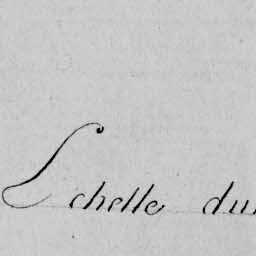 Echelle du